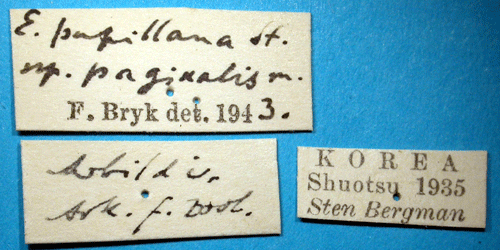 E. pupillana St.
ssp. paginalis m.
F. Bryk det. 1943.
Avbild i.
Ark. f. Zool.
KOREA
Shuotsu 1935
Sten Bergman